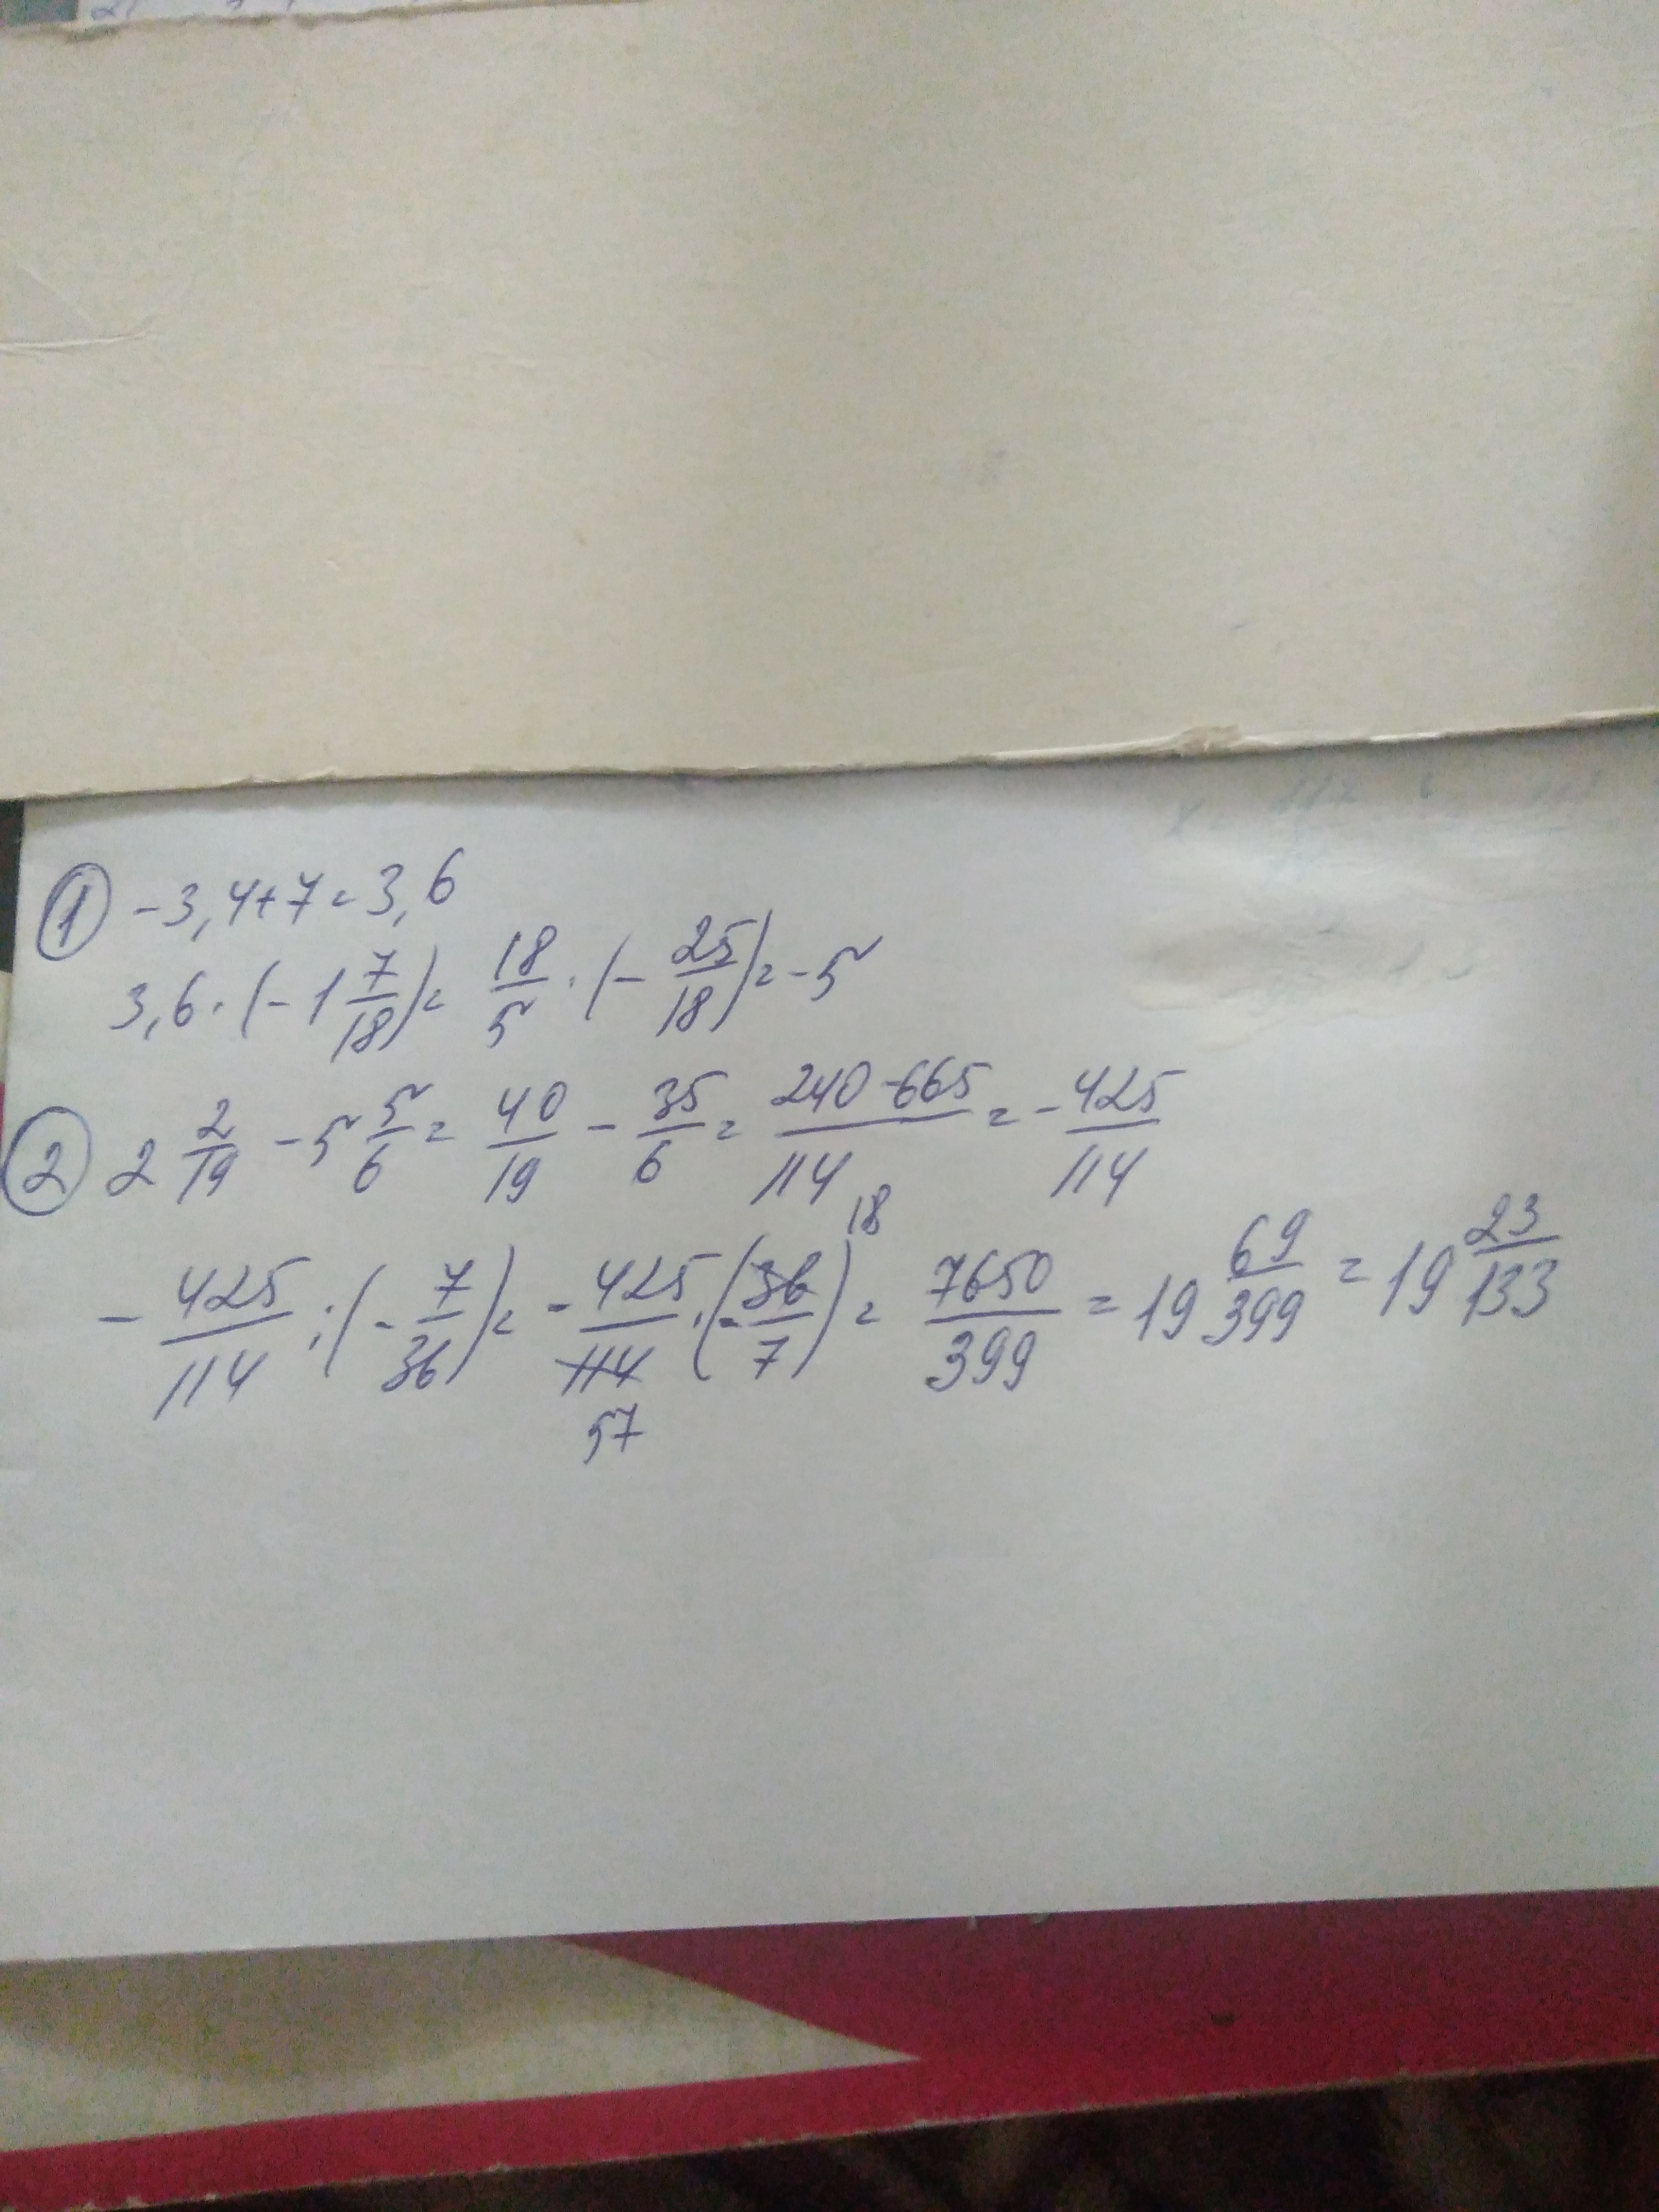 ① -3,4+7=3,6
3,6·(-1 7/18)= 18/5·(-25/18)=-5
② 2 2/19 -5 5/6= 40/19 - 35/6= 240-665/114=-425/114
-425/114:(-7/36)=-425/114·(-36/7)=7650/399=19 69/399=19 23/133
18
57